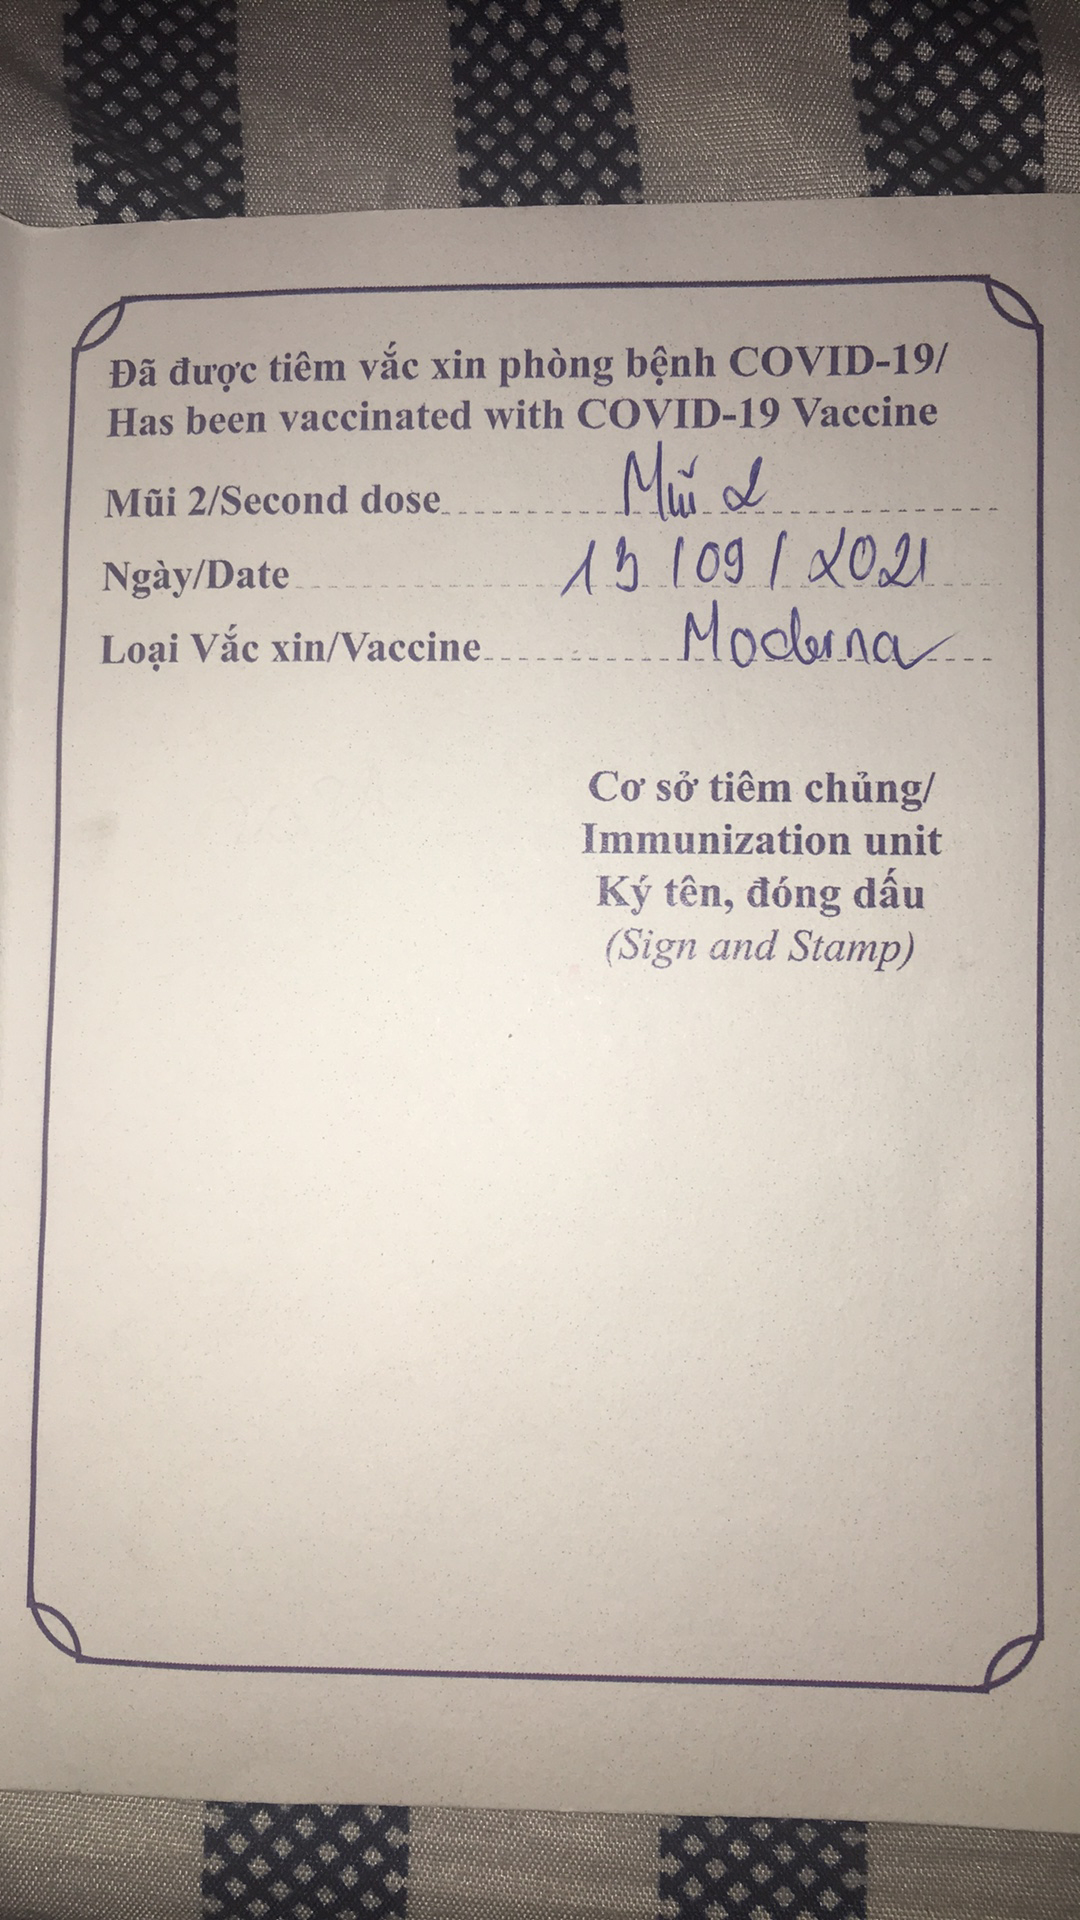 Đã được tiêm vắc xin phòng bệnh COVID-19/
Has been vaccinated with COVID-19 Vaccine
Mũi 2/Second dose Mũi 2
Ngày/Date 13/09/2021
Loại Vắc xin/Vaccine Moderna
Cơ sở tiêm chủng/
Immunization unit
Ký tên, đóng dấu
(Sign and Stamp)